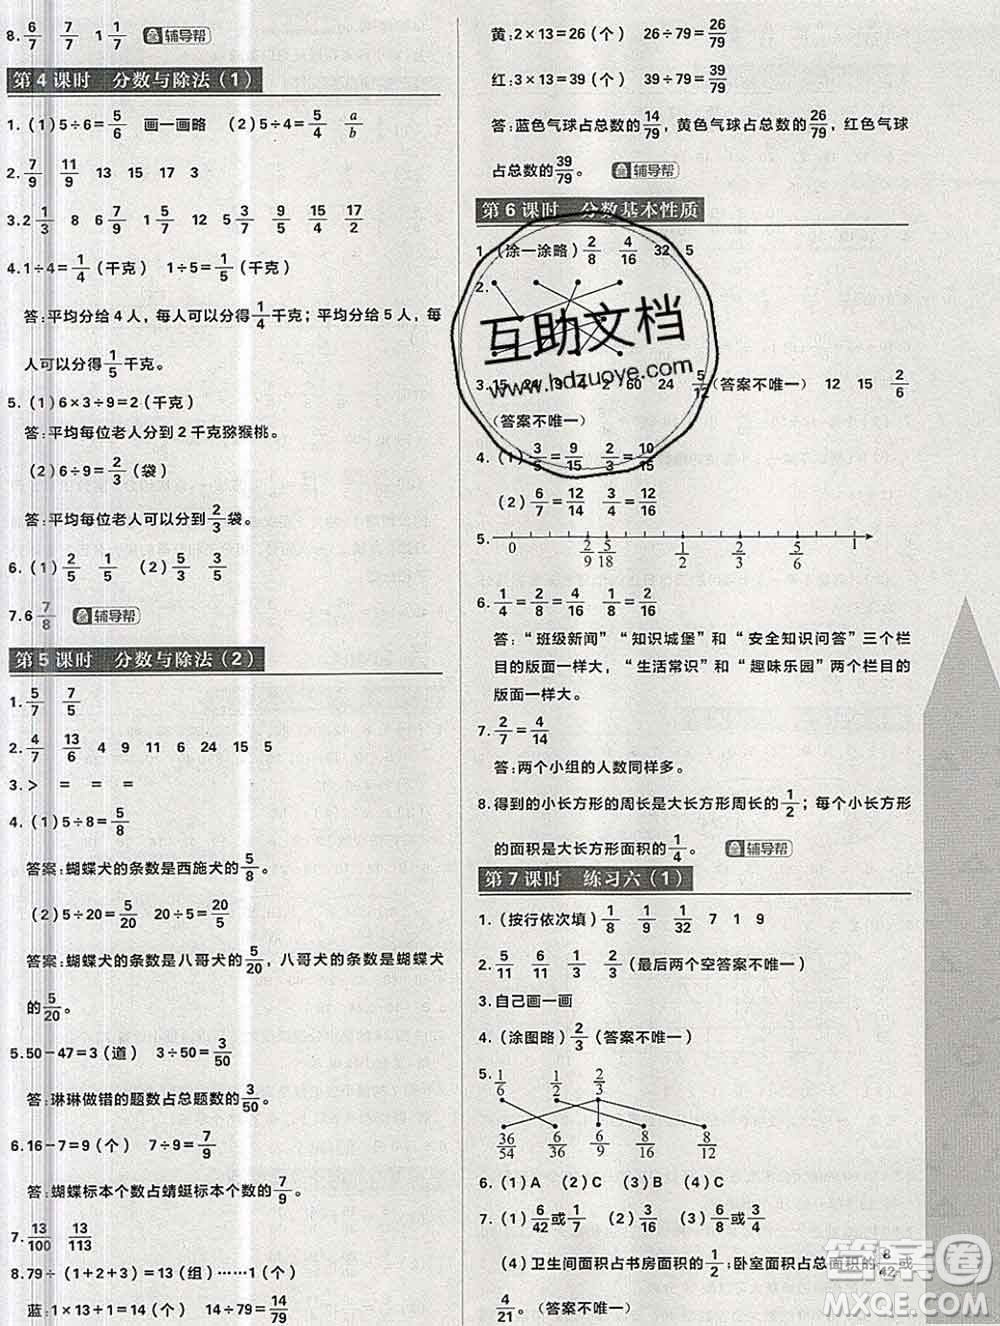 8. 6/7 7/7 1 1/7 辅导帮
第4课时 分数与除法（1）
1.（1）5÷6=5/6 画一画略 （2）5÷4=5/4 a/b
2. 7/9 11/9 13 15 17 3
3. 2 1/3 8 6 7/9 1 5/7 12 5 3/7 9/5 15/4 17/2
4. 1÷4=1/4（千克） 1÷5=1/5（千克）
答:平均分给4人，每人可以分得1/4千克；平均分给5人，每
人可以分得1/5千克。
5.（1）6×3÷9=2（千克）
答:平均每位老人分到2千克猕猴桃。
（2）6÷9=2/3（袋）
答:平均每位老人可以分到2/3袋。
6.（1）2/5 1/5 （2）3/5 3/5
7. 6 7/8 辅导帮
第5课时 分数与除法（2）
1. 5/7 7/5
2. 4/7 13/6 4 9 11 6 24 15 5
3. > = = =
4.（1）5÷8=5/8
答案:蝴蝶犬的条数是西施犬的5/8。
（2）5÷20=5/20 20÷5=20/5
答案:蝴蝶犬的条数是八哥犬的5/20，八哥犬的条数是蝴蝶犬
的5/20。
5. 50-47=3（道） 3÷50=3/50
答:琳琳做错的题数占总题数的3/50。
6. 16-7=9（个） 7÷9=7/9
答:蝴蝶标本个数占蜻蜓标本个数的7/9。
7. 13/100 13/113
8. 79÷（1+2+3）=13（组）……1（个）
蓝:1×13+1=14（个） 14÷79=14/79
黄:2×13=26（个） 26÷79=26/79
红:3×13=39（个） 39÷79=39/79
答:蓝色气球占总数的14/79，黄色气球占总数的26/79，红色气球
占总数的39/79。 辅导帮
第6课时 分数基本性质
1.（涂一涂略）2/8 4/16 32 5
2.
互助文档
www.hdzuoye.com
3. 15 24 9 4 2 60 24 5/12（答案不唯一） 12 15 2/6
（答案不唯一）
4.（1）3/5=9/15 2/3=10/15
（2）6/7=12/14 3/4=12/16
5. 0 2/9 5/18 1/2 2/3 5/6 1
6. 1/4=2/8=4/16 1/8=2/16
答:“班级新闻”“知识城堡”和“安全知识问答”三个栏
目的版面一样大，“生活常识”和“趣味乐园”两个栏目的
版面一样大。
7. 2/7=4/14
答:两个小组的人数同样多。
8. 得到的小长方形的周长是大长方形周长的1/2；每个小长方形
的面积是大长方形面积的1/4。 辅导帮
第7课时 练习六（1）
1.（按行依次填）1/8 1/9 1/32 7 1 9
2. 5/11 6/11 1/3 2/3（最后两个空答案不唯一）
3. 自己画一画
4.（涂图略）2/3（答案不唯一）
5. 1/6 1/2 2/3
36/54 6/36 6/9 8/16 8/12
6.（1）A （2）C （3）B （4）C
7.（1）6/42或1/7 （2）3/16 （3）6/8或3/4
（4）卫生间面积占书房面积的1/2；卧室面积占总面积的8/42或
4/21。（答案不唯一）
答案圈
MXQE.COM